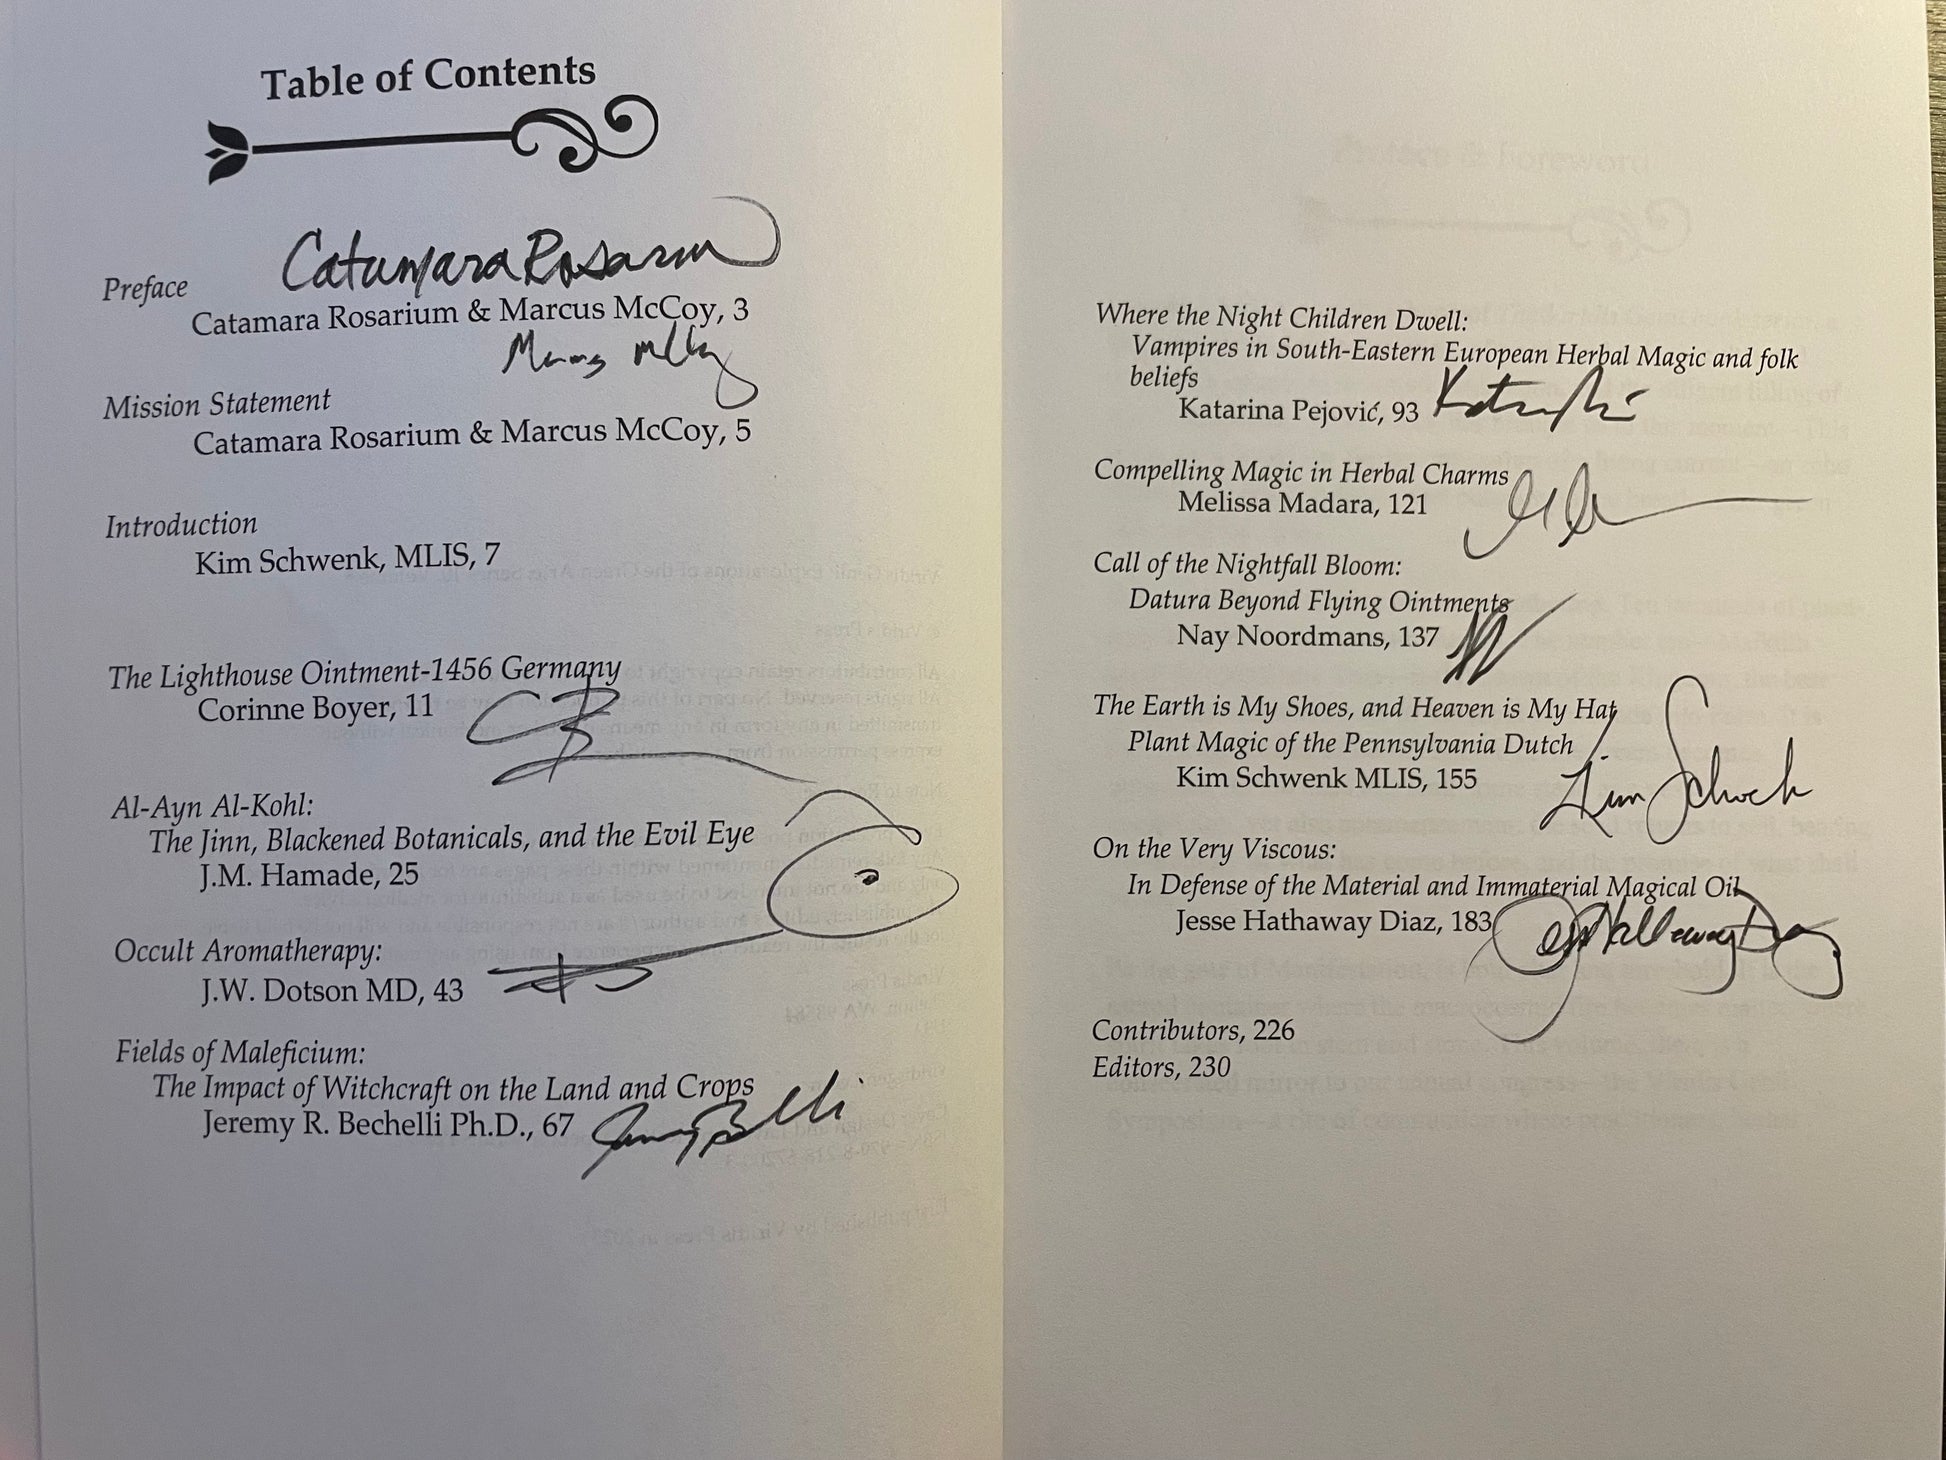 Table of Contents
Catamara Rosarium
Preface
Catamara Rosarium & Marcus McCoy, 3
Mission Statement
Catamara Rosarium & Marcus McCoy, 5
Introduction
Kim Schwenk, MLIS, 7
The Lighthouse Ointment-1456 Germany
Corinne Boyer, 11
CB
Al-Ayn Al-Kohl:
The Jinn, Blackened Botanicals, and the Evil Eye
J.M. Hamade, 25
Occult Aromatherapy:
J.W. Dotson MD, 43
Fields of Maleficium:
The Impact of Witchcraft on the Land and Crops
Jeremy R. Bechelli Ph.D., 67
Where the Night Children Dwell:
Vampires in South-Eastern European Herbal Magic and folk
beliefs
Katarina Pejović, 93
Compelling Magic in Herbal Charms
Melissa Madara, 121
Call of the Nightfall Bloom:
Datura Beyond Flying Ointments
Nay Noordmans, 137
The Earth is My Shoes, and Heaven is My Hat
Plant Magic of the Pennsylvania Dutch
Kim Schwenk MLIS, 155
Kim Schwenk
On the Very Viscous:
In Defense of the Material and Immaterial Magical Oil
Jesse Hathaway Diaz, 183
Contributors, 226
Editors, 230